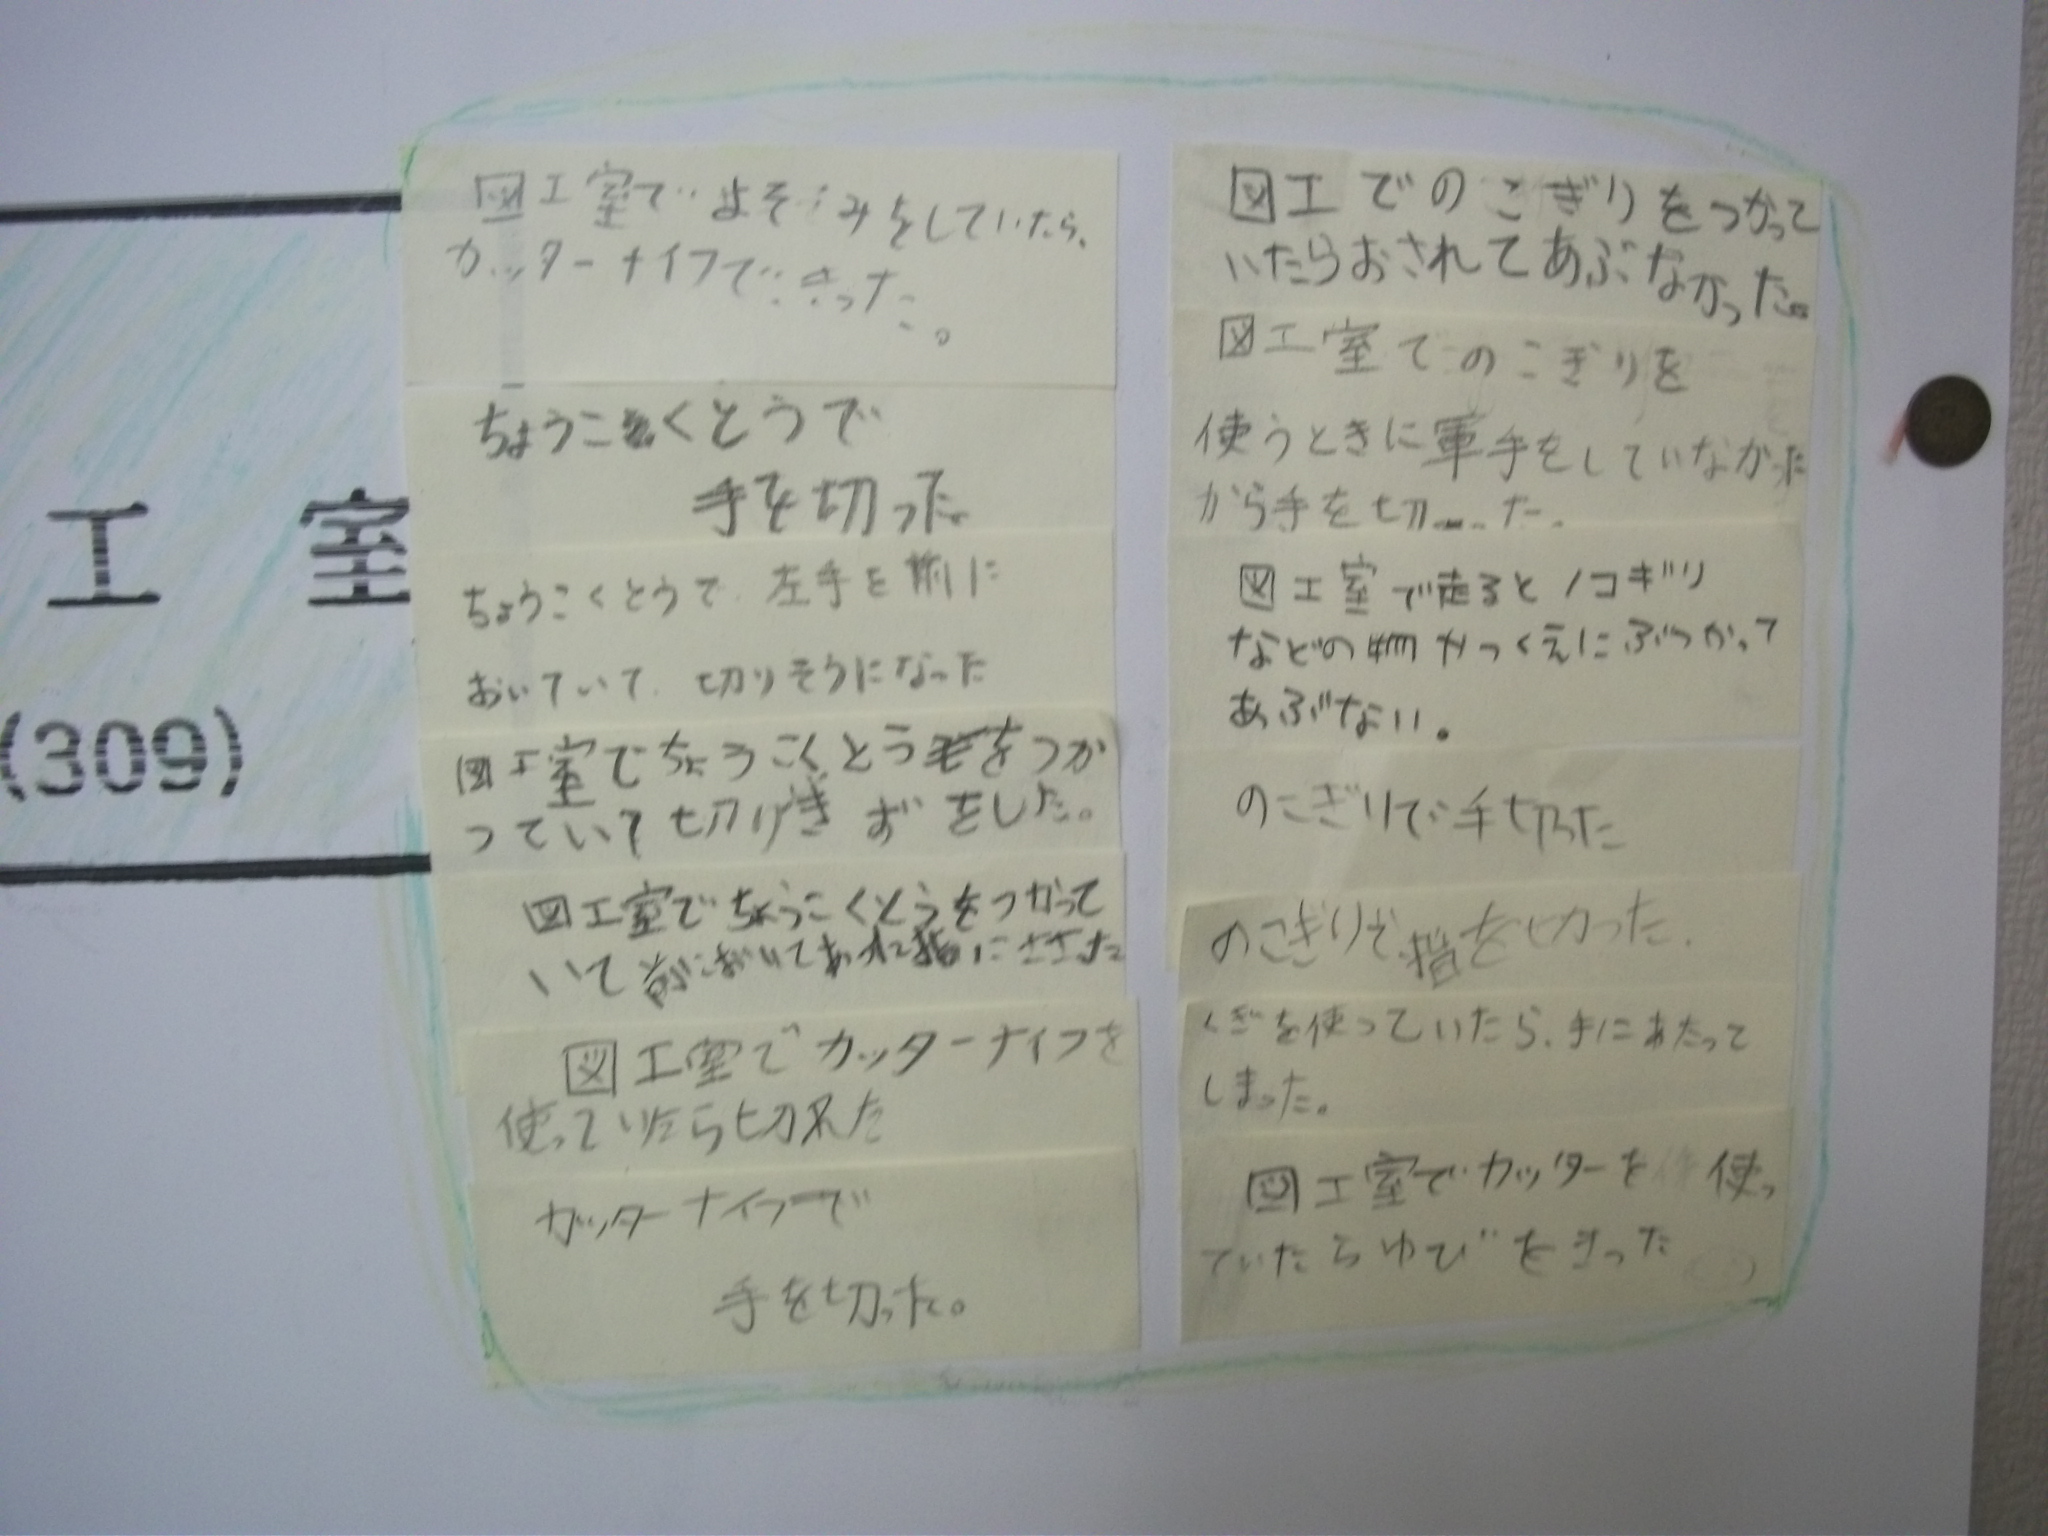 工室
(309)
図工室でよそみをしていたら、
カッターナイフできった。
ちょうこくとうで
手を切った
ちょうこくとうで、左手を前に
おいていて、切りそうになった
図工室でちょうこくとうをつか
っていて切りきずをした。
図工室でちょうこくとうをつかって
いて前においてあった指にささった
図工室でカッターナイフを
使っていたら切れた
カッターナイフで
手を切った。
図工でのこぎりをつかって
いたらおされてあぶなかった。
図工室でのこぎりを
使うときに軍手をしていなかった
から手を切った。
図工室で走るとノコギリ
などの物やつくえにぶつかって
あぶない。
のこぎりで手切った
のこぎりで指を切った.
くぎを使っていたら、手にあたって
しまった。
図工室でカッターを使っ
ていたらゆびをきった